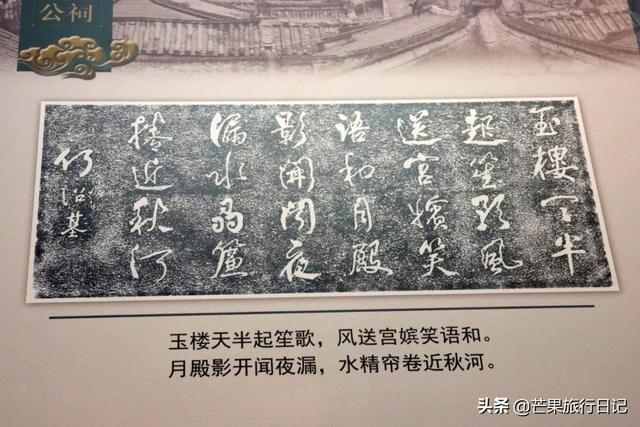 公祠
玉樓天半
起笙歌風
送宮嬪笑
語和月殿
影開聞夜
漏水晶簾
捲近秋河
何紹基
玉楼天半起笙歌，风送宫嫔笑语和。
月殿影开闻夜漏，水精帘卷近秋河。
头条 @芒果旅行日记